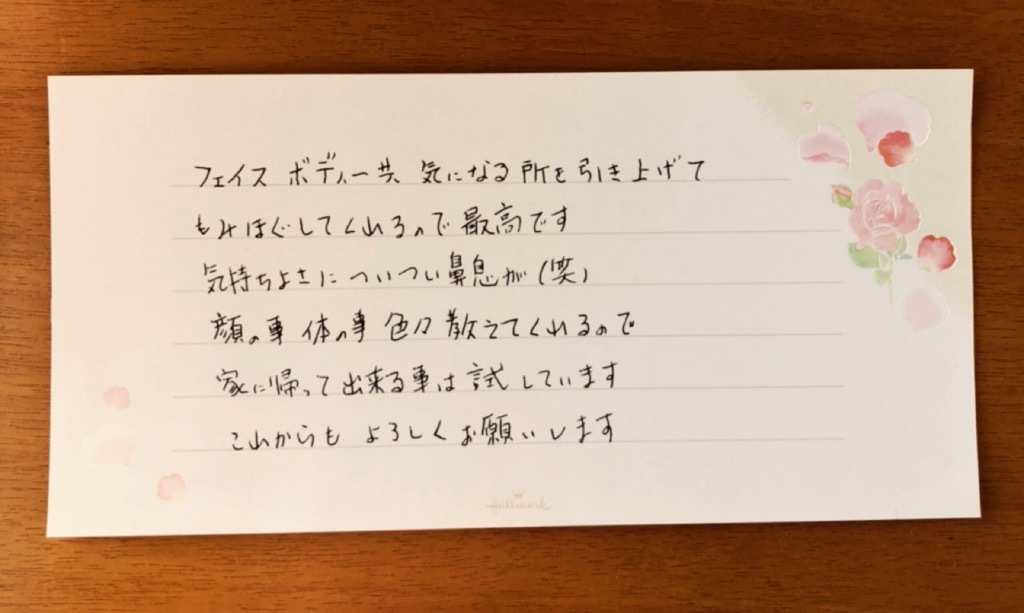 フェイス ボディー共 気になる所を引き上げて
もみほぐしてくれるので最高です
気持ちよさに ついつい鼻息が(笑)
顔の事 体の事 色々 教えてくれるので
家に帰って出来る事は試しています
これからも よろしくお願いします
Hallmark